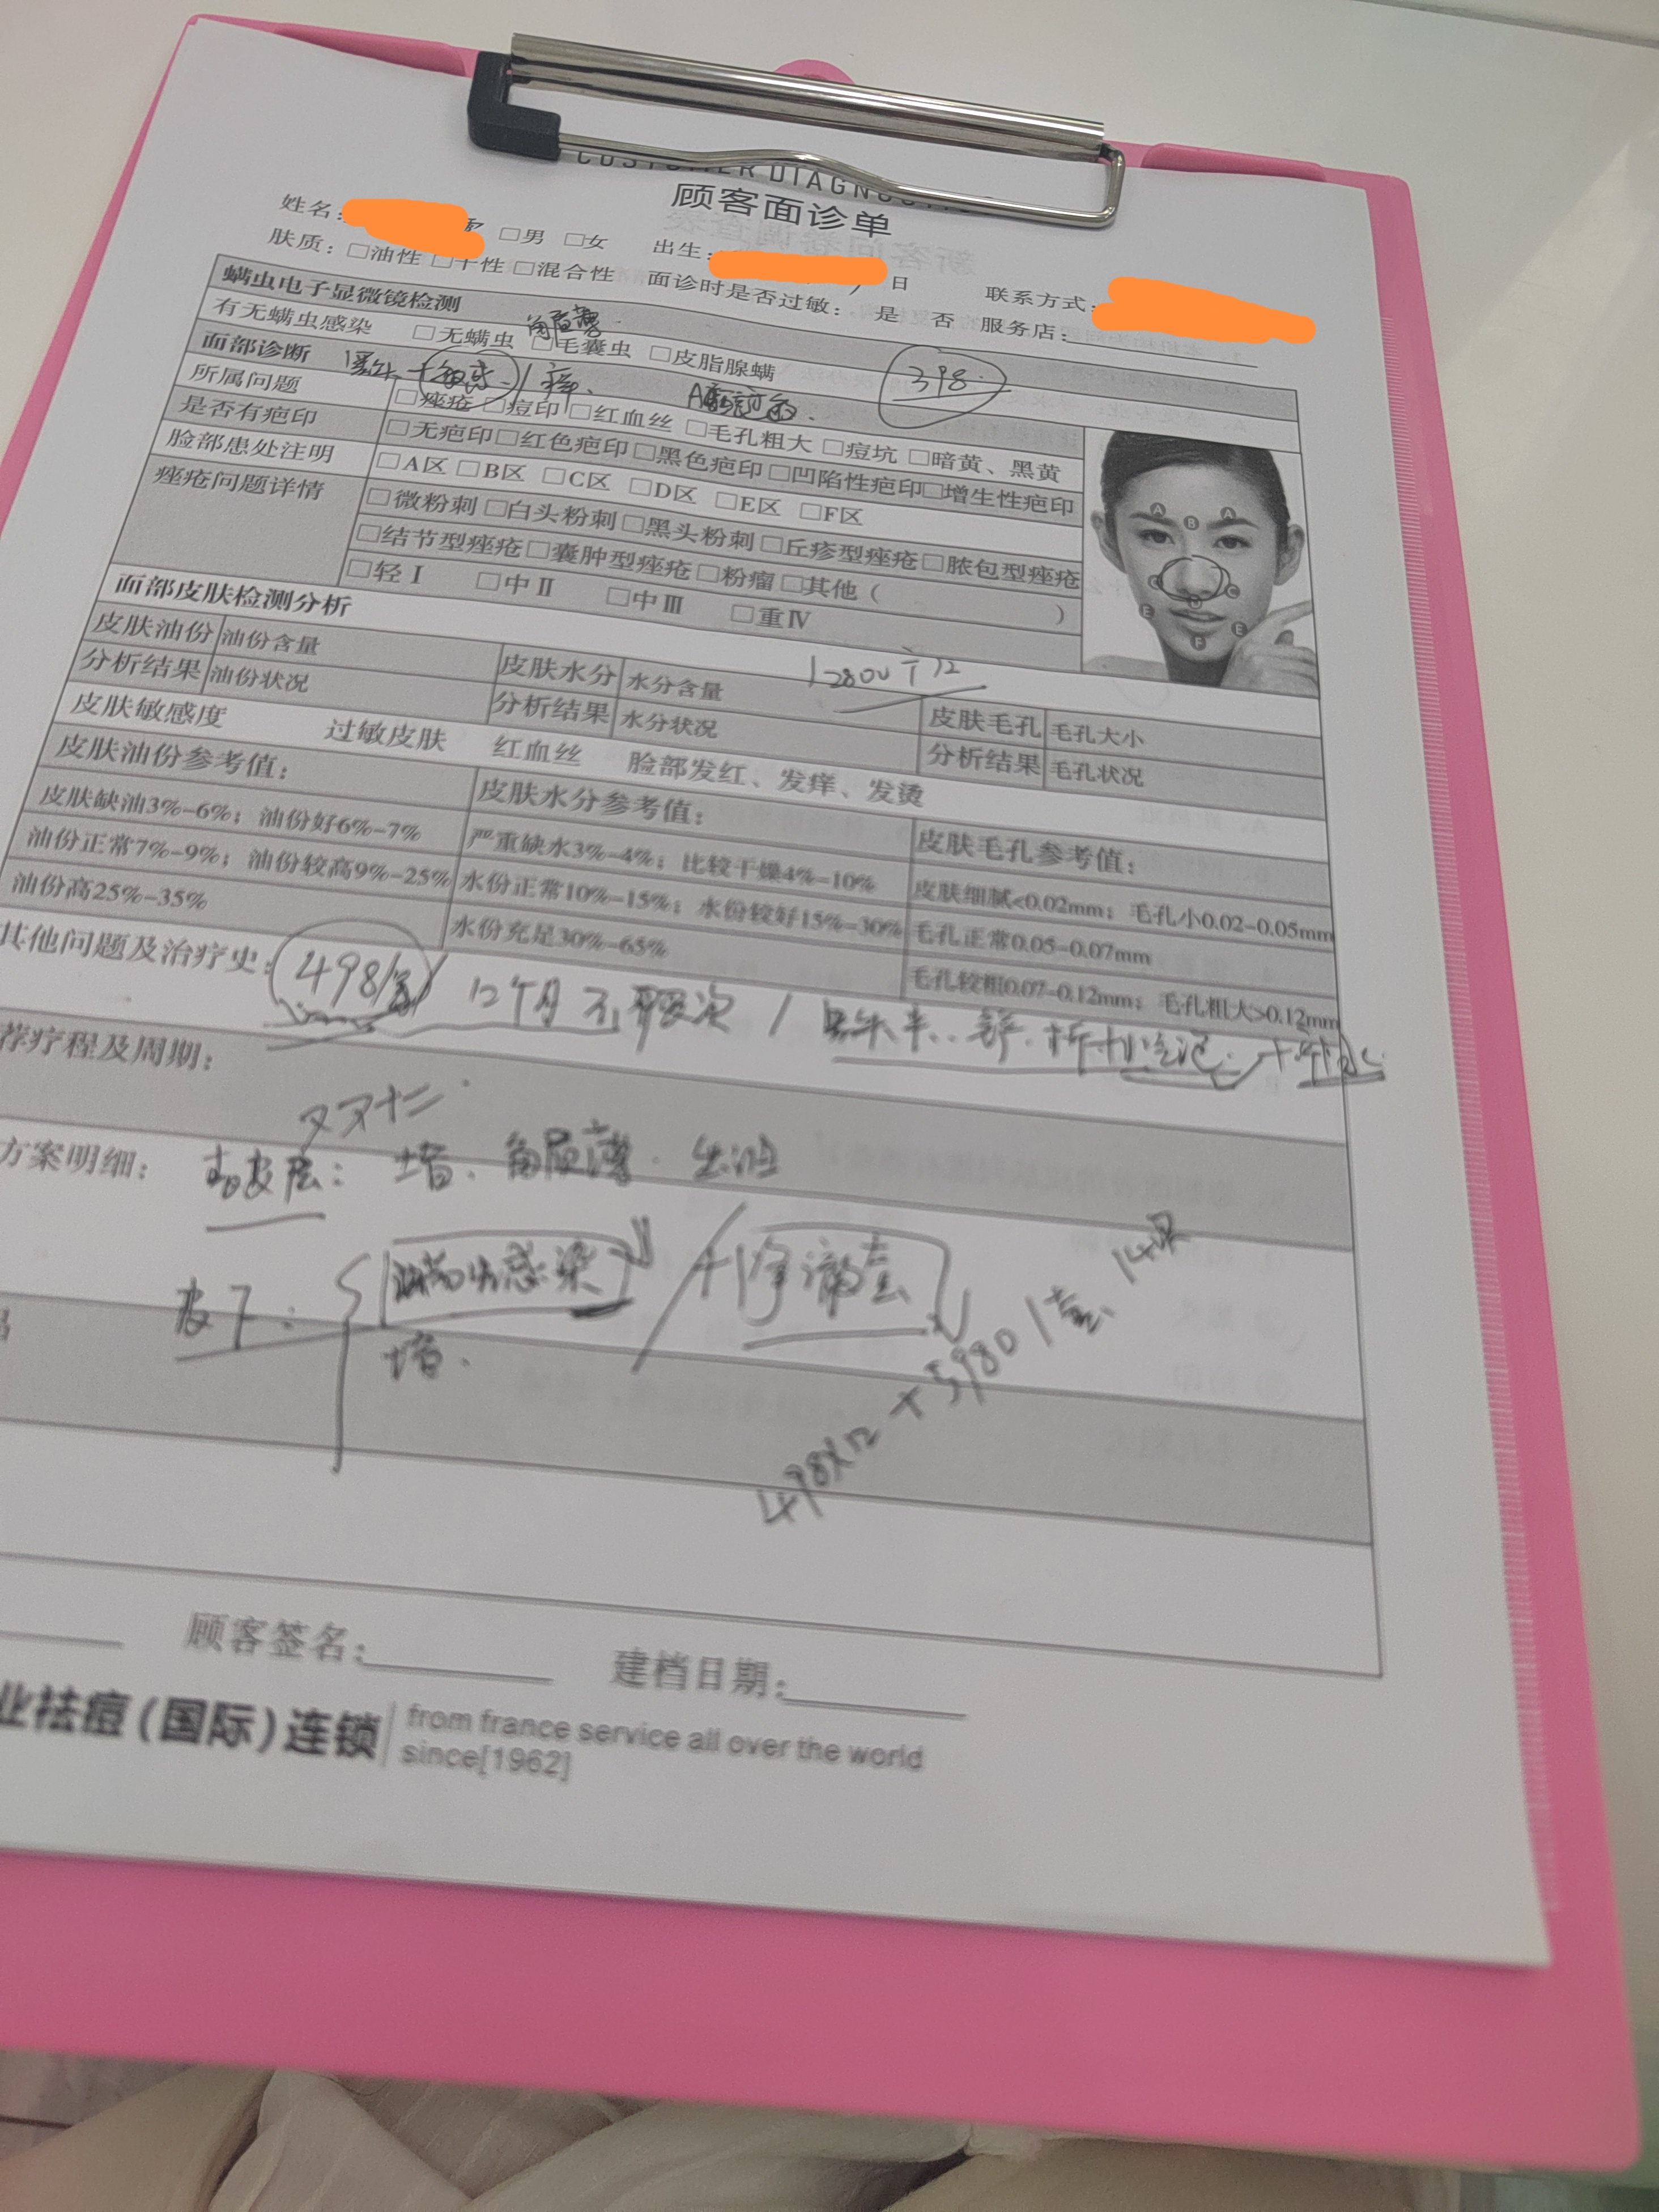 CUSTOMER DIAGNO
顾客面诊单
姓名： □男 □女 出生： 日 联系方式：
肤质：□油性 □干性 □混合性 面诊时是否过敏： 是 否 服务店：
螨虫电子显微镜检测
角质薄
有无螨虫感染 □无螨虫 □毛囊虫 □皮脂腺螨
398
面部诊断
敏感
所属问题 □痤疮 □痘印 □红血丝 □毛孔粗大 □痘坑 □暗黄、黑黄
是否有疤印 □无疤印□红色疤印□黑色疤印□凹陷性疤印□增生性疤印
脸部患处注明 □A区 □B区 □C区 □D区 □E区 □F区
痤疮问题详情 □微粉刺 □白头粉刺 □黑头粉刺 □丘疹型痤疮 □脓包型痤疮
□结节型痤疮 □囊肿型痤疮 □粉瘤 □其他（ ）
□轻Ⅰ □中Ⅱ □中Ⅲ □重Ⅳ
A A B C C D E E F
面部皮肤检测分析
皮肤油份 油份含量 皮肤水分 水分含量 皮肤毛孔 毛孔大小
分析结果 油份状况 分析结果 水分状况 分析结果 毛孔状况
皮肤敏感度 过敏皮肤 红血丝 脸部发红、发痒、发烫
皮肤油份参考值： 皮肤水分参考值： 皮肤毛孔参考值：
皮肤缺油3%-6%；油份好6%-7% 严重缺水3%-4%；比较干燥4%-10% 皮肤细腻<0.02mm；毛孔小0.02-0.05mm
油份正常7%-9%；油份较高9%-25% 水份正常10%-15%；水份较好15%-30% 毛孔正常0.05-0.07mm
油份高25%-35% 水份充足30%-65% 毛孔较粗0.07-0.12mm；毛孔粗大>0.12mm
其他问题及治疗史：
498/ 12个月不限次 /
荐疗程及周期：
方案明细：
表皮层： 堵. 角质薄. 出油
皮下： 螨虫感染
堵.
498×12 + 5980 / 套
顾客签名： 建档日期：
业祛痘（国际）连锁
from france service all over the world
since[1962]